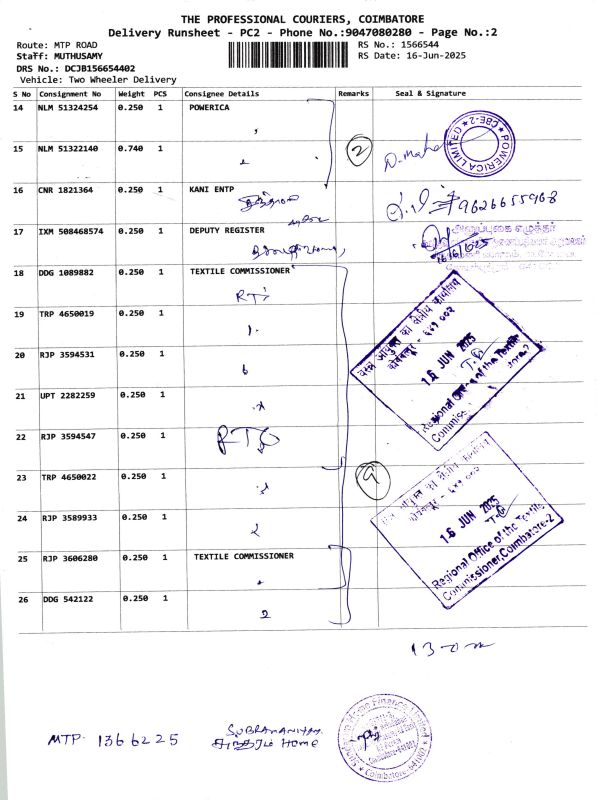 THE PROFESSIONAL COURIERS, COIMBATORE
Delivery Runsheet - PC2 - Phone No.:9047080280 - Page No.:2
Route: MTP ROAD
Staff: MUTHUSAMY
DRS No.: DCJB156654402
Vehicle: Two Wheeler Delivery
RS No.: 1566544
RS Date: 16-Jun-2025
S No Consignment No Weight PCS Consignee Details Remarks Seal & Signature
14 NLM 51324254 0.250 1 POWERICA
15 NLM 51322140 0.740 1
2
POWERICA LIMITED ★ CBE-2 ★
16 CNR 1821364 0.250 1 KANI ENTP
9626655968
17 IXM 508468574 0.250 1 DEPUTY REGISTER
16/6/2025
18 DDG 1089882 0.250 1 TEXTILE COMMISSIONER
RTI
19 TRP 4650019 0.250 1
20 RJP 3594531 0.250 1
21 UPT 2282259 0.250 1
22 RJP 3594547 0.250 1
RTO
23 TRP 4650022 0.250 1
24 RJP 3589933 0.250 1
25 RJP 3606280 0.250 1 TEXTILE COMMISSIONER
26 DDG 542122 0.250 1
2
9
16 JUN 2025
Regional Office of the Textile
Commiss
16 JUN 2025
Regional Office of the Textile
Commissioner, Coimbatore-2
MTP. 1366225
SUBRAMANIYAM
HOME
Home Finance Limited
Coimbatore-641002